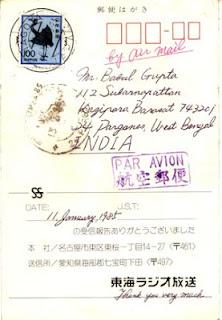 郵便はがき
100
NIPPON
by air mail
Mr. Babul Gupta
112 Sukarnopattan
Barasat 743202
24 Parganas, West Bengal
INDIA
PAR AVION
航空郵便
SS
DATE: U.S.T:
11 January, 1985
の受信報告ありがとうございました
本 社/名古屋市東区東桜一丁目14-27 (〒461)
送信所/愛知県海部郡七宝町下田 (〒497)
東海ラジオ放送
Thank you very much.